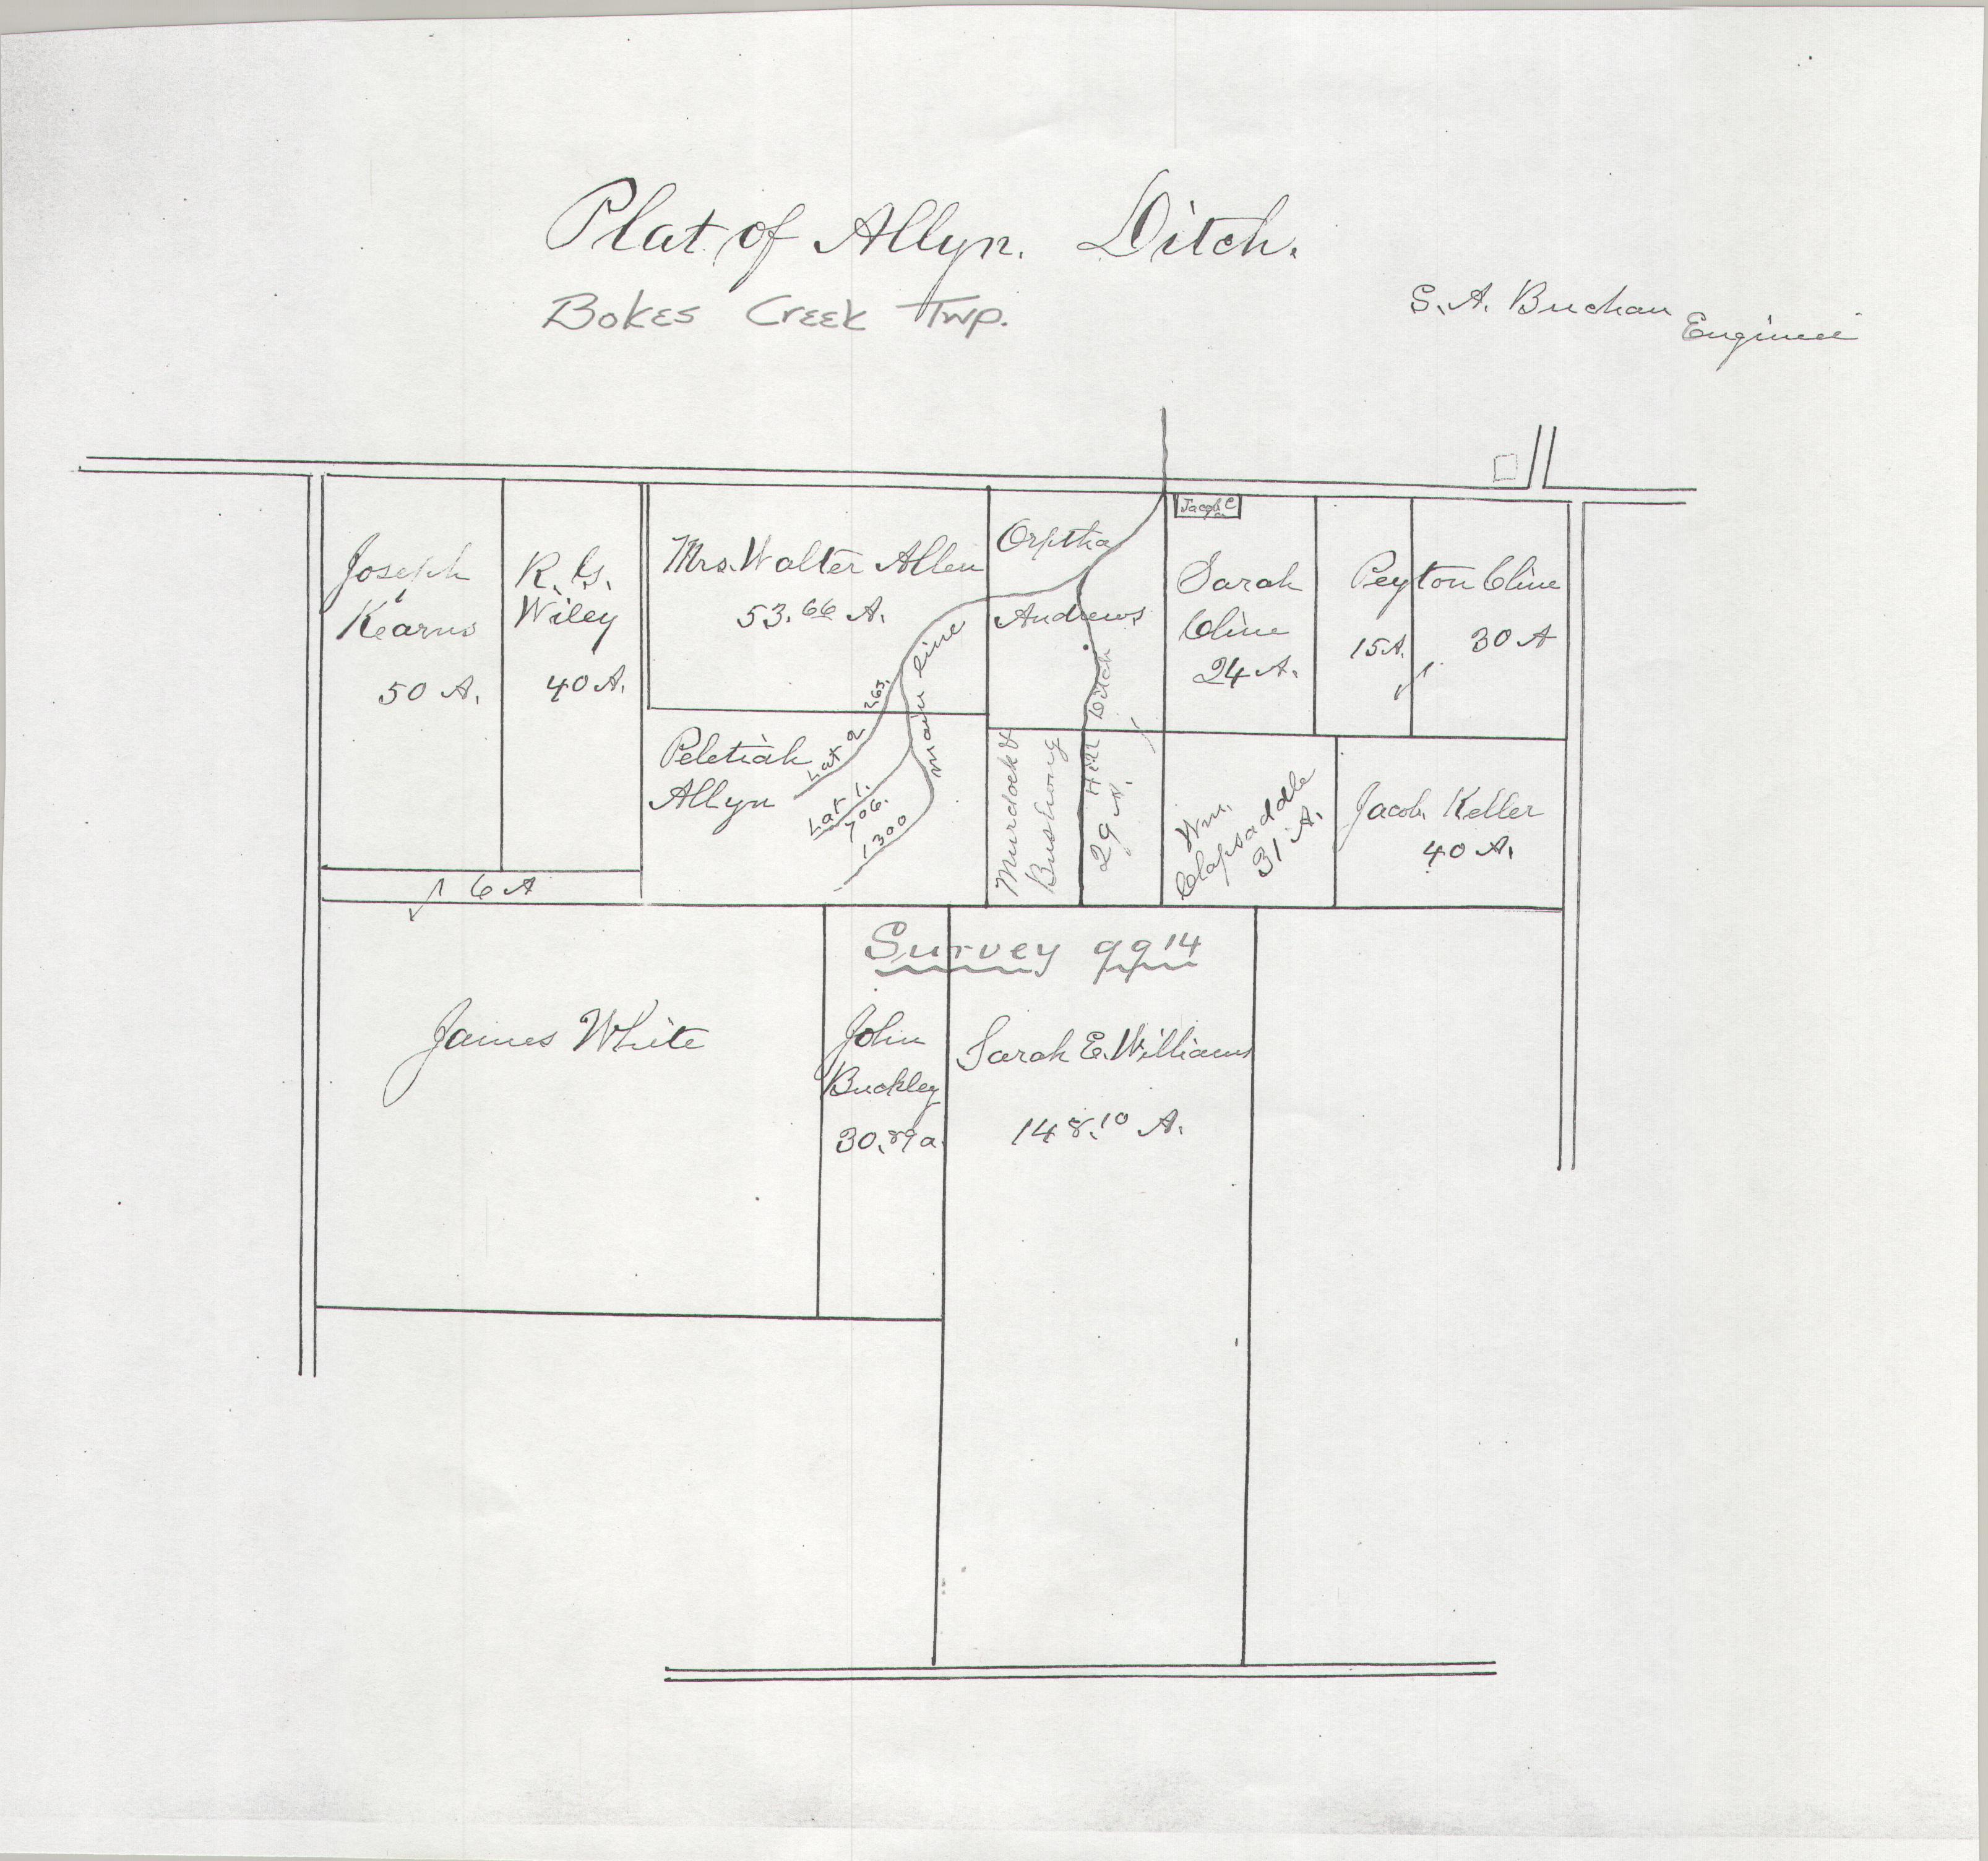 Plat of Allyn. Ditch.
Bokes Creek Twp.
S. A. Buchan
Engineer
Joseph
Kearns
50 A.
R. G.
Wiley
40 A.
Mrs. Walter Allen
53.66 A.
Orptha
Andrews
Jacob C
Sarah
Cline
24 A.
Peyton Cline
15 A.
30 A
Peletiah
Allyn
Lat 2 265.
Lat 1.
706.
1300
main line
Hill Ditch
Murdock &
Bushong
29 A.
Wm.
Clapsaddle
31 A.
Jacob Keller
40 A.
6 A
Survey 9914
James White
John
Buckley
30.89 a.
Sarah E. Williams
148.10 A.